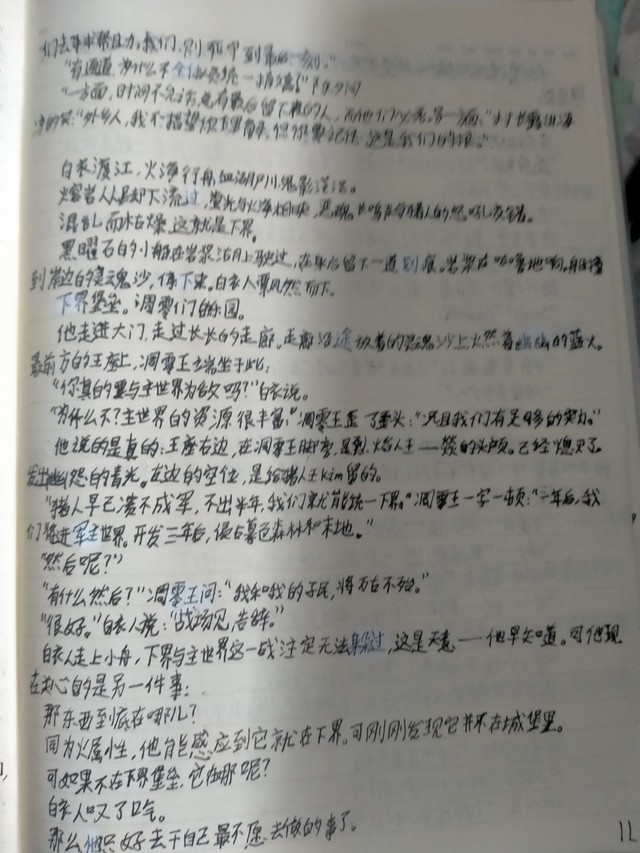 们去寻求帮助力,我们,则死守到最后一刻。"
"有通道,为什么不全
"一方面,时间不允许,也有最后留下来的人,而他们必死。另一方面,"
:"外乡人,我不指望你下里,但你要记住,这是我们的根。"
白衣渡江,火海行舟,血湖川,鬼影茫茫。
熔岩从层却下流过,莹光与火海相映,恶魂的鸣声与猪人的怒吼交错。
混乱而枯燥,这就是下界。
黑曜石的小船在岩浆湖上驶过,在身后留下一道划痕。岩浆在咕噜地响。船撞
到岸边的灵魂沙,停下来。白衣人飘然而下。
下界堡垒。凋零们的乐园。
他走进大门,走过长长的走廊。走廊沿途放着的灵魂沙上火燃着幽幽的蓝火。
最前方的王座上,凋零王端坐于此:
"你真的要与主世界为敌吗?"白衣说。
"为什么不?主世界的资源很丰富,"凋零王歪了歪头:"况且我们有足够的实力。"
他说的是真的:王座右边,在凋零王脚旁,是烈焰人王——的头颅。已经熄灭了,
发出幽怨的青光。左边的空位,是给猪人王kim留的。
"猪人早已溃不成军,不出半年,我们就能统一下界。"凋零王一字一顿:"一年后,我
们将进军主世界。开发三年后,侵占暮色森林和末地。"
"然后呢?"
"有什么然后?"凋零王问:"我和我的子民,将万古不殆。"
"很好。"白衣人说:"战场见,告辞。"
白衣人走上小舟,下界与主世界这一战注定无法躲过,这是天意——他早知道。可他现
在关心的是另一件事:
那东西到底在哪儿?
同为火属性,他能感应到它就在下界。可刚刚发现它并不在城堡里。
可如果不在下界堡垒,它在哪呢?
白衣人叹了口气。
那么他只好去干自己最不愿去做的事了。
11